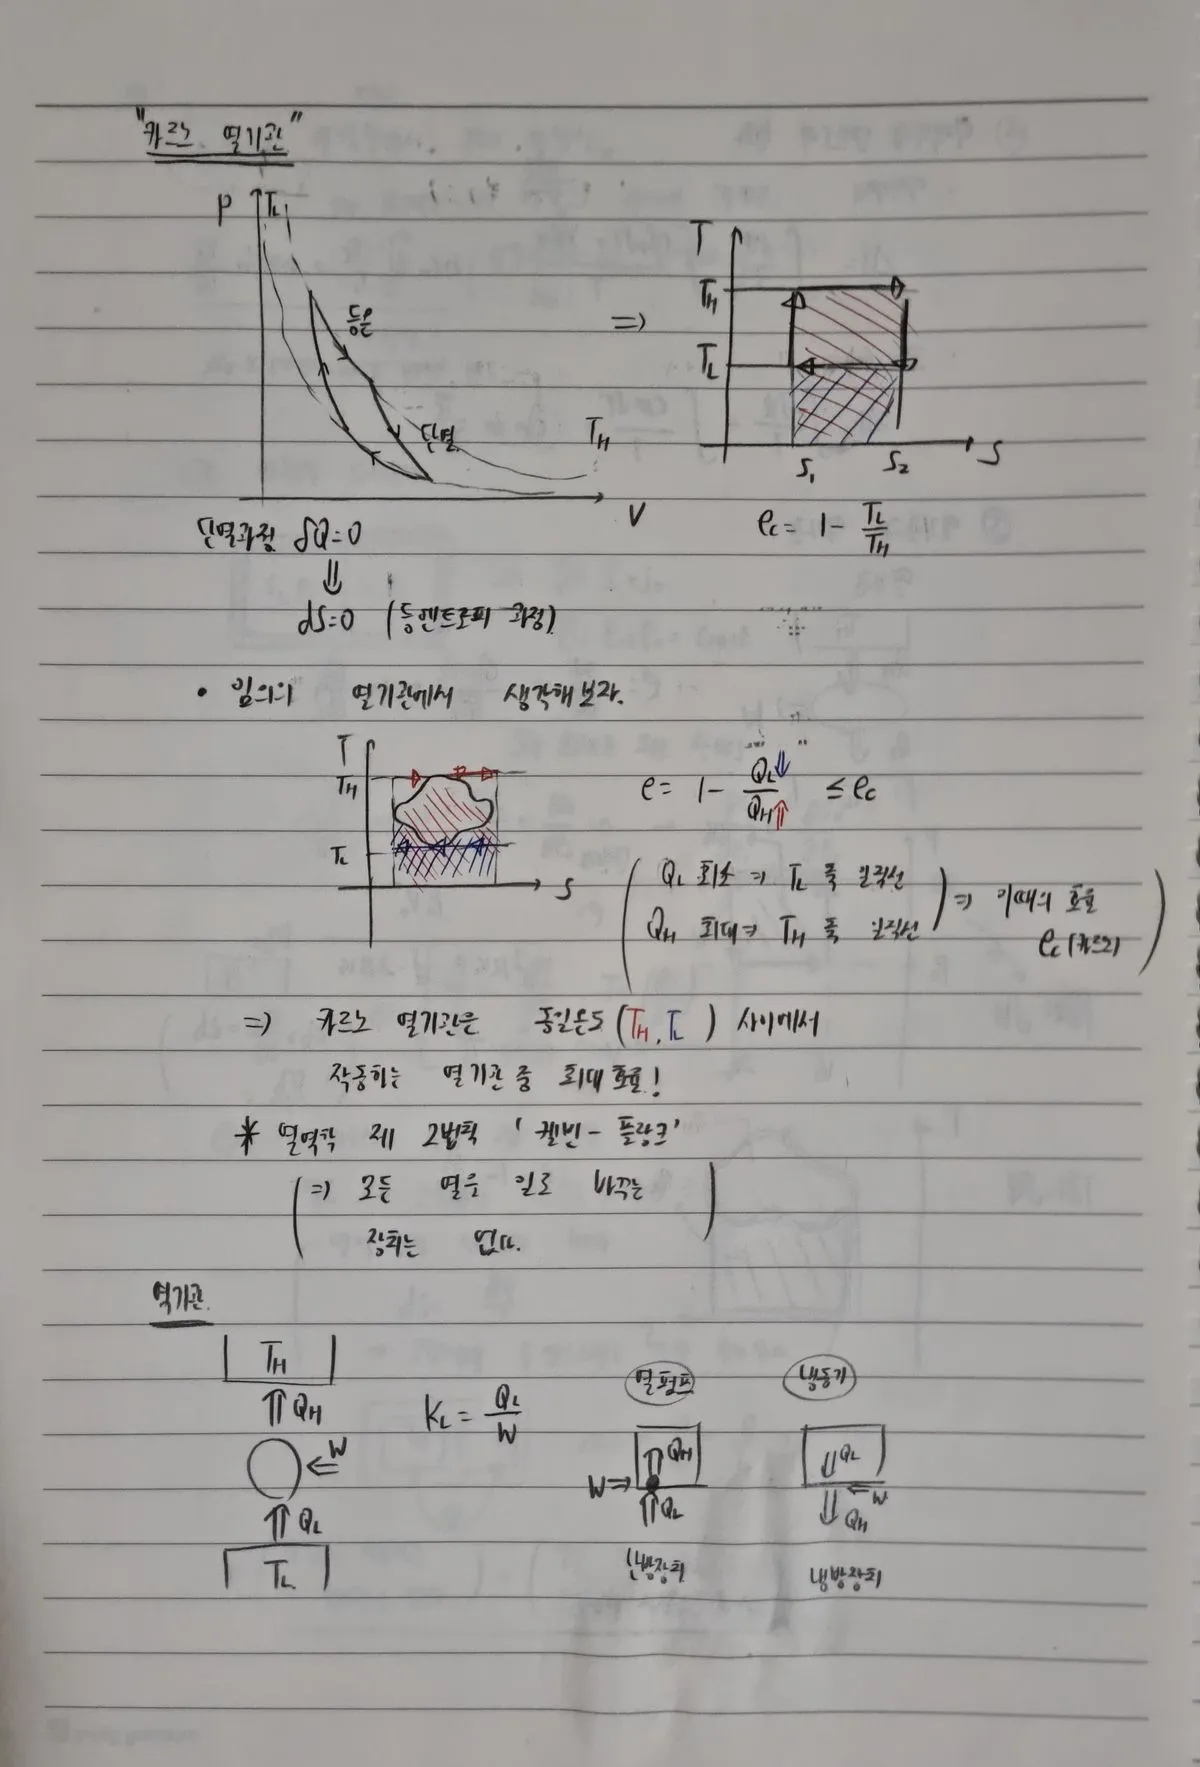 "카르노 열기관"
P
TL
등온
단열
TH
V
⇒
T
TH
TL
S1
S2
S
단열과정 δQ=0
⇓
dS=0 (등엔트로피 과정)
ec = 1 - TL/TH
• 임의의 열기관에서 생각해보자.
T
TH
TL
S
e = 1 - QL⇓/QH⇑ ≤ ec
( QL 최소 ⇒ TL 쪽 일직선
QH 최대 ⇒ TH 쪽 일직선 ) ⇒ 이때의 효율
ec (카르노)
⇒ 카르노 열기관은 동일온도 (TH, TL) 사이에서
작동하는 열기관 중 최대 효율!
* 열역학 제 2법칙 '켈빈 - 플랑크'
( ⇒ 모든 열을 일로 바꾸는
장치는 없다. )
열기관
TH
⇑ QH
⇐ W
⇑ QL
TL
KL = QL/W
열펌프
⇑ QH
W ⇒
⇑ QL
난방장치
냉동기
⇓ QL
⇐ W
⇓ QH
냉방장치